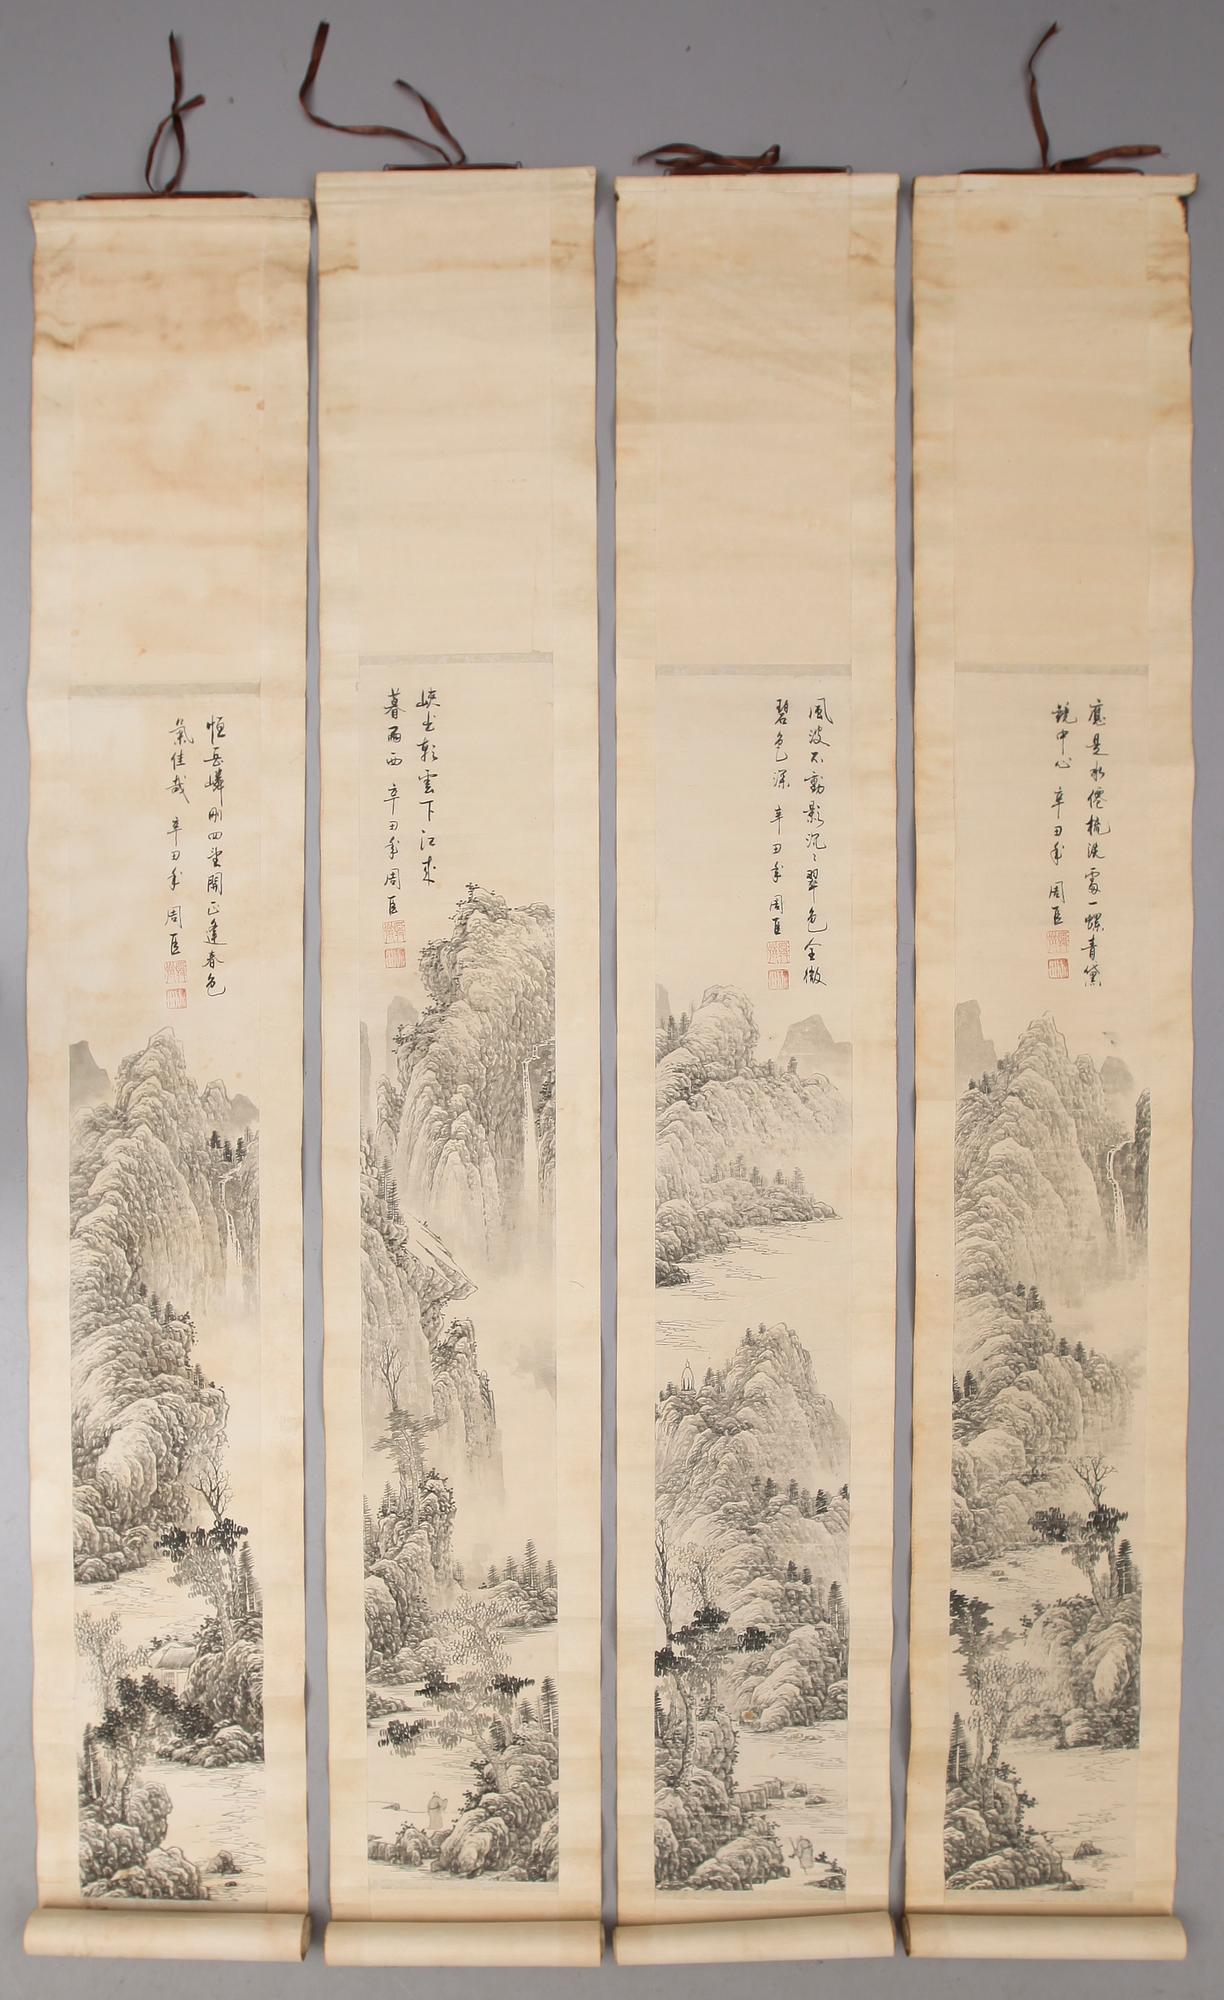 恒岳嶙四望開正逢春色
氣佳哉 辛丑年 周臣
峽出朝雲下江來
暮雨西 辛丑年周臣
風波不動影沉〻翠色全微
碧色深 辛丑年周臣
應是水僊梳洗處一螺青黛
鏡中心 辛丑年 周臣